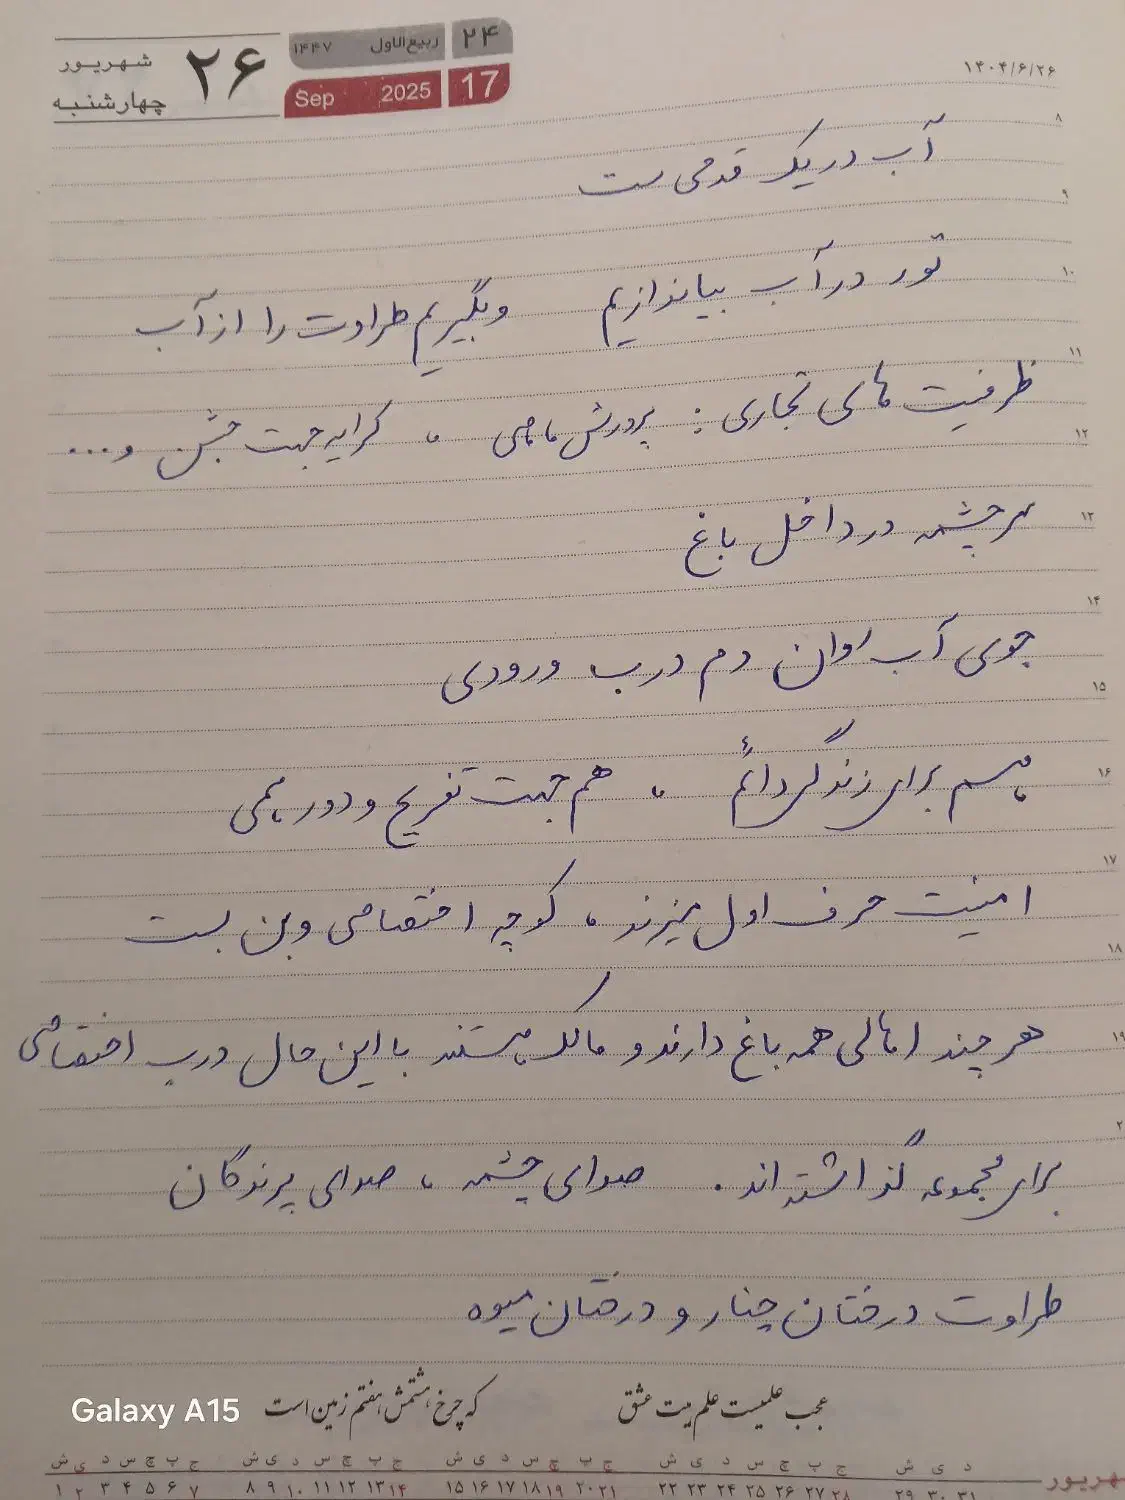 ۲۶ شهریور چهارشنبه
۲۴ ربیع‌الاول ۱۴۴۷
17 Sep 2025
۱۴۰۴/۶/۲۶
۸
آب در یک قدمی ست
۹
تور در آب بیاندازیم وبگیریم طراوت را از آب
۱۰
۱۱
ظرفیت های تجاری : پرورش ماهی ، کرایه جهت جشن و...
۱۲
سرچشمه در داخل باغ
۱۳
۱۴
جوی آب روان دم درب ورودی
۱۵
هم برای زندگی دائم ، هم جهت تفریح و دورهمی
۱۶
۱۷
امنیت حرف اول میزند ، کوچه اختصاصی وبن بست
۱۸
هر چند اهالی همه باغ دارند و مالک هستند با این حال درب اختصاصی
۱۹
برای مجموعه گذاشته اند . صدای چشمه ، صدای پرندگان
طراوت درختان چنار و درختان میوه
عجب علمیست علم هیت عشق که چرخ هشتمش هفتم زمین است
Galaxy A15
د ی ش ج پ چ س د ی ش ج پ چ س د ی ش ج پ چ س د ی ش ج پ چ س د ی ش
شهریور ۳۱ ۳۰ ۲۹ ۲۸ ۲۷ ۲۶ ۲۵ ۲۴ ۲۳ ۲۲ ۲۱ ۲۰ ۱۹ ۱۸ ۱۷ ۱۶ ۱۵ ۱۴ ۱۳ ۱۲ ۱۱ ۱۰ ۹ ۸ ۷ ۶ ۵ ۴ ۳ ۲ ۱